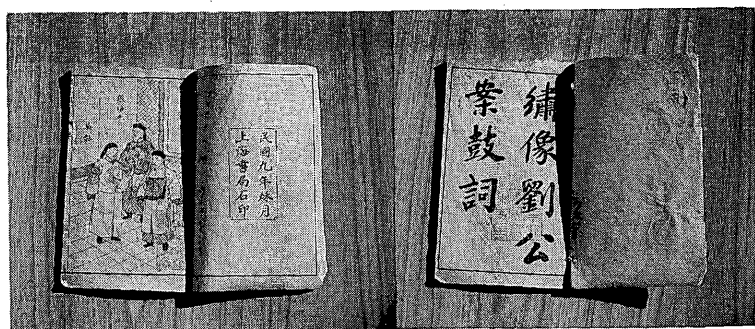 民國九年秋月
上海書局石印
繡像劉公
案鼓詞